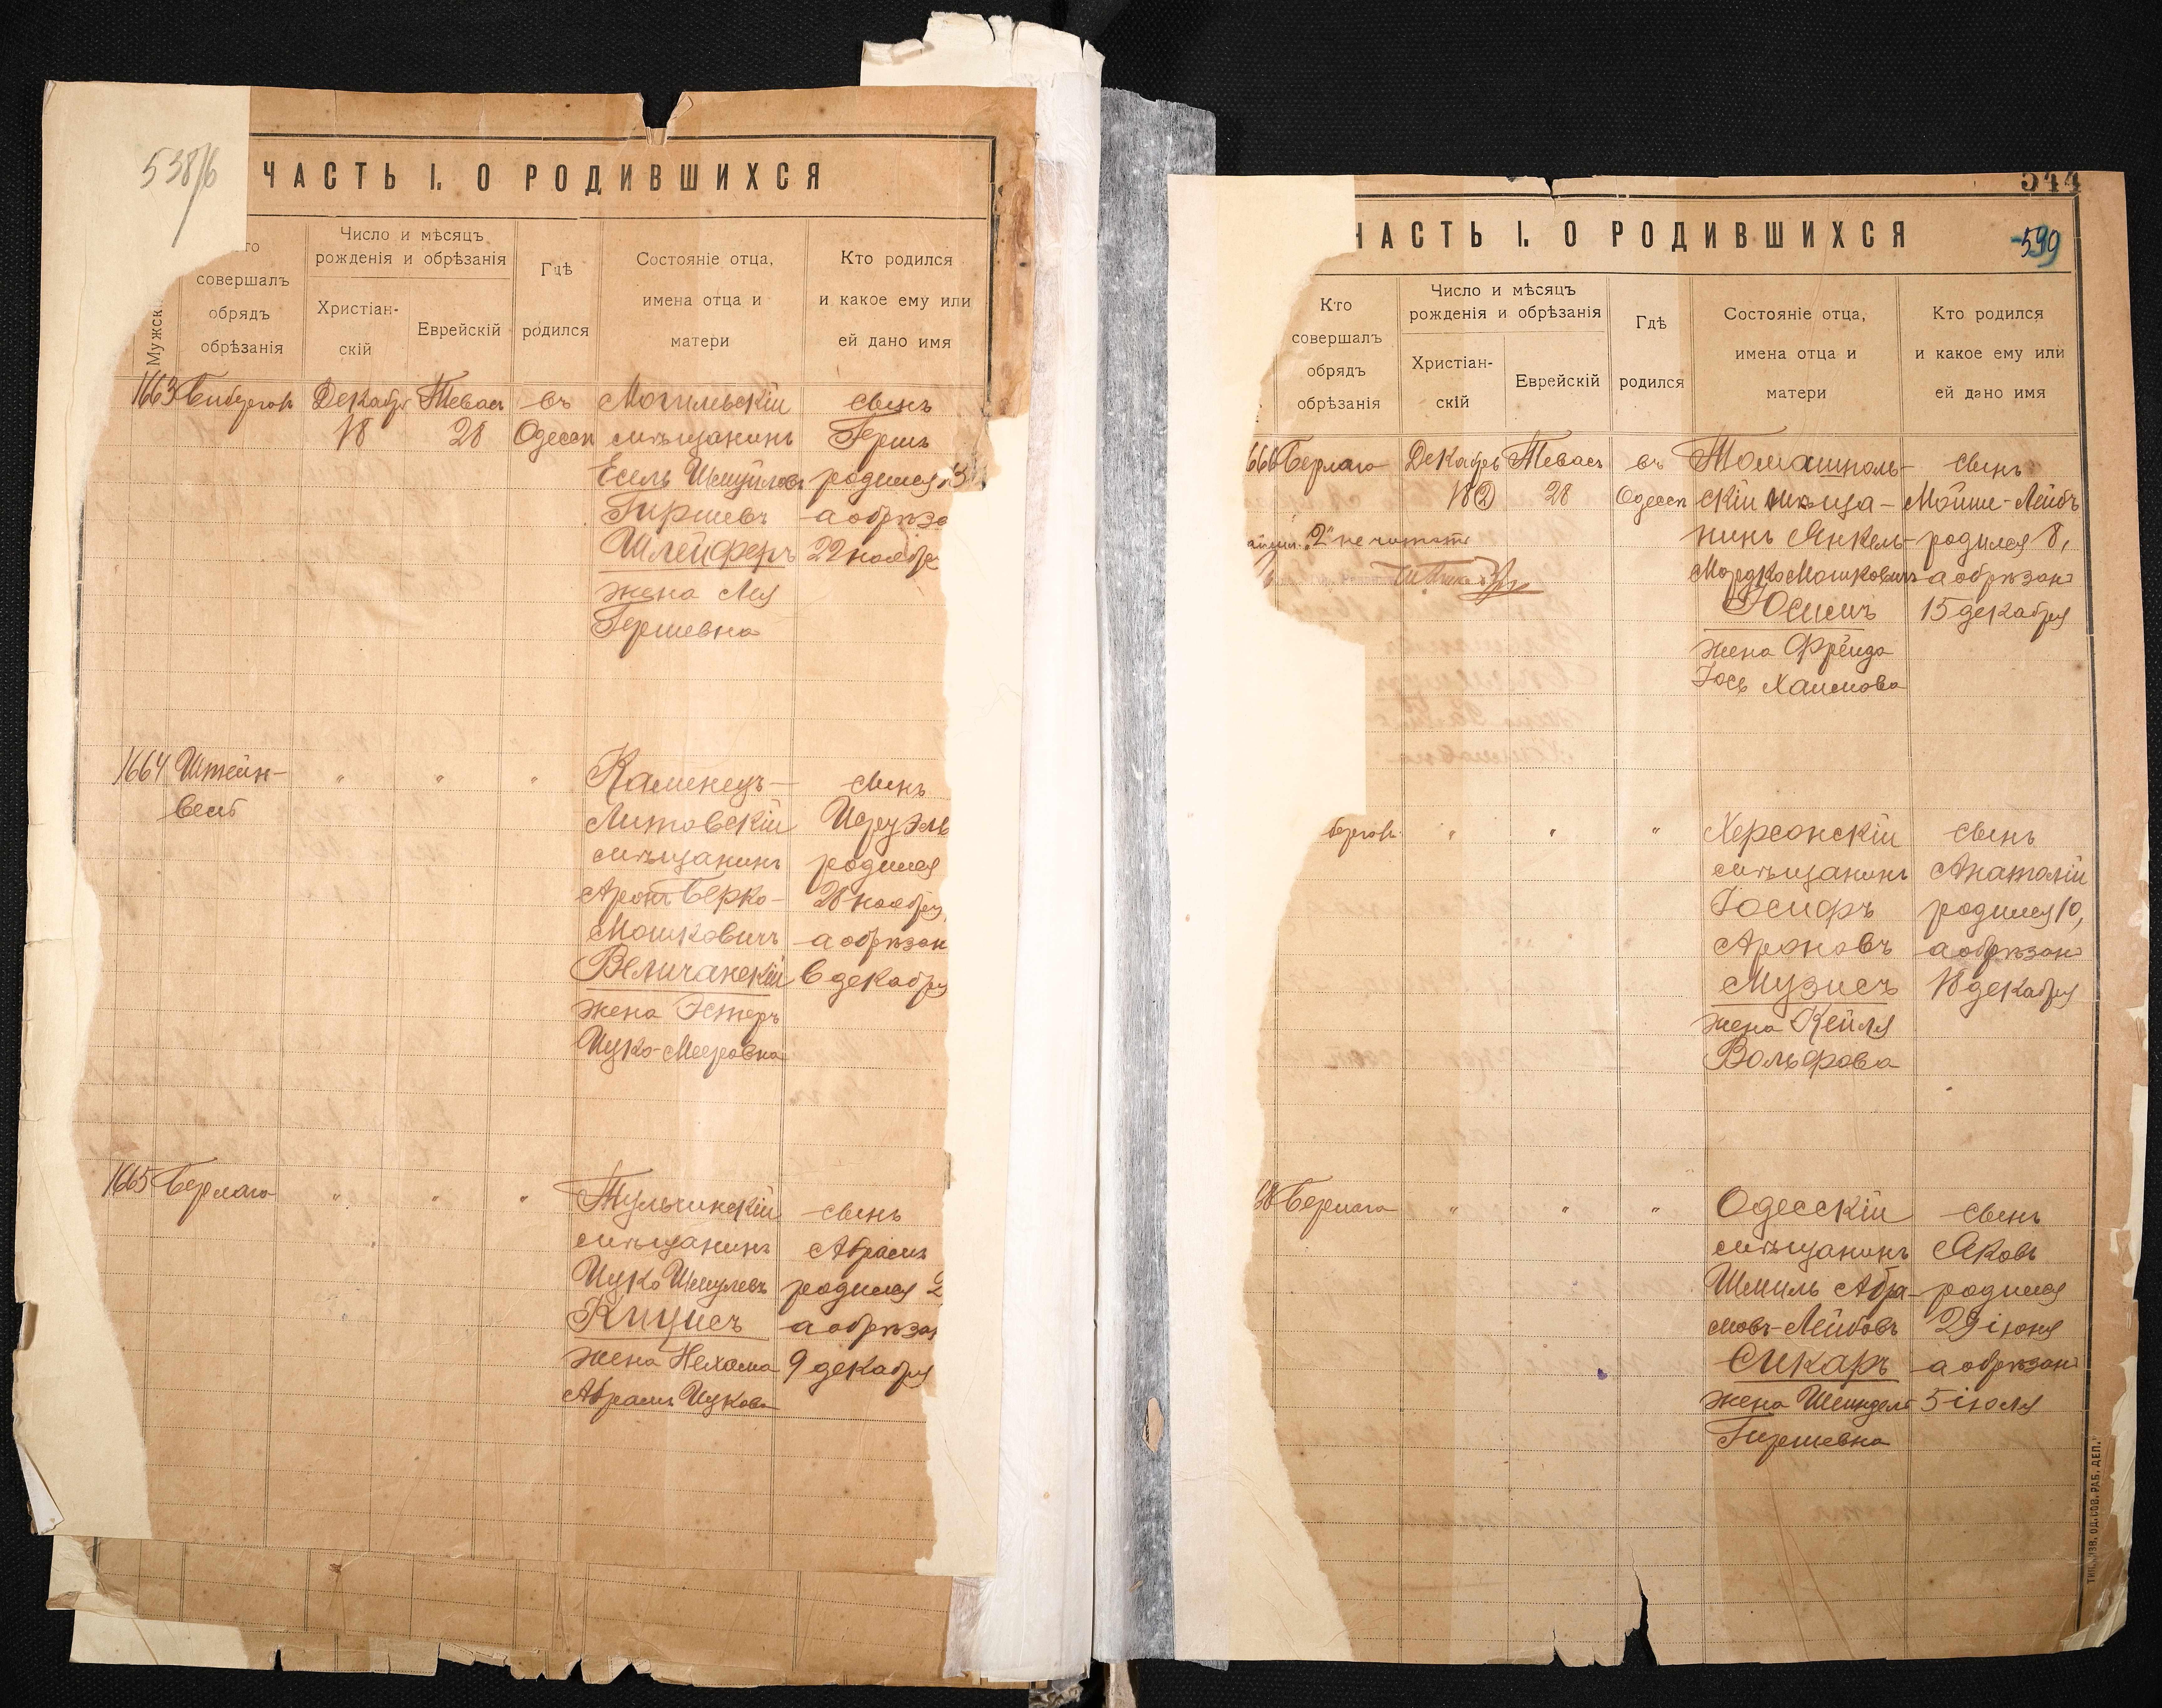 538/б
ЧАСТЬ I. О РОДИВШИХСЯ
Мужск.
то
совершалъ
обрядъ
обрѣзанія
Число и мѣсяцъ
рожденія и обрѣзанія
Христіан-
скій
Еврейскій
Гдѣ
родился
Состояніе отца,
имена отца и
матери
Кто родился
и какое ему или
ей дано имя
1663
Декабр
18
Теваса
28
въ
Одессѣ
Могильскій
мѣщанинъ
Есель Шмуйловъ
Гиршевъ
Шлейферъ
жена Лея
Гершевна
сынъ
Гершъ
родился 13
а обрѣза
22 ноябре
1664
Штейн-
весъ
"
"
"
Каменецъ-
Литовскій
мѣщанинъ
Аронъ Берко-
Мошковичъ
Величанскій
жена Эстеръ
Ицко-Мееровна
сынъ
Изруэль
родился
28 ноября,
а обрѣзан
6 декабря
1665
Берлага
"
"
"
Тульчинскій
мѣщанинъ
Ицко Шмулевъ
Кицисъ
жена Нехама
Абрамъ Ицкова
сынъ
Абрамъ
родился 2
а обрѣзан
9 декабря
544
599
ЧАСТЬ I. О РОДИВШИХСЯ
Кто
совершалъ
обрядъ
обрѣзанія
Число и мѣсяцъ
рожденія и обрѣзанія
Христіан-
скій
Еврейскій
Гдѣ
родился
Состояніе отца,
имена отца и
матери
Кто родился
и какое ему или
ей дано имя
666
Берлага
"2" не читать
Декабрь
18 2
Теваса
28
въ
Одессѣ
Томашполь-
скій мѣща-
нинъ Янкель-
Мордко Мошковичъ
Юсимъ
жена Фрейда
Іось Хаимова
сынъ
Мойше-Лейбъ
родился 8,
а обрѣзанъ
15 декабря
берговъ
"
"
"
Херсонскій
мѣщанинъ
Іосифъ
Ароновъ
Музисъ
жена Кейля
Вольфова
сынъ
Анатолій
родился 10,
а обрѣзанъ
18 декабря
68
Берлага
"
"
"
Одесскій
мѣщанинъ
Шмиль Абра-
мовъ-Лейбовъ
Сикаръ
жена Шейндель
Гиршевна
сынъ
Яковъ
родился
29 іюня
а обрѣзанъ
5 іюля
ТИП. ИЗВ. ОД. СОВ. РАБ. ДЕП.